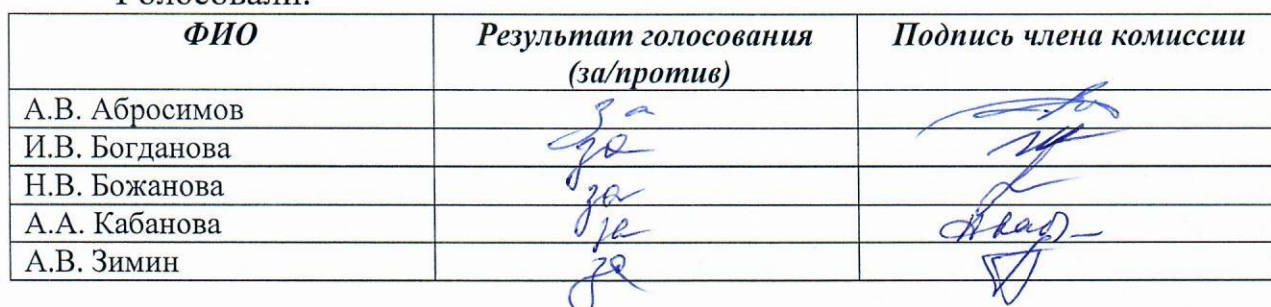 Голосовали:
ФИО Результат голосования Подпись члена комиссии
(за/против)
А.В. Абросимов за
И.В. Богданова за
Н.В. Божанова за
А.А. Кабанова за
А.В. Зимин за